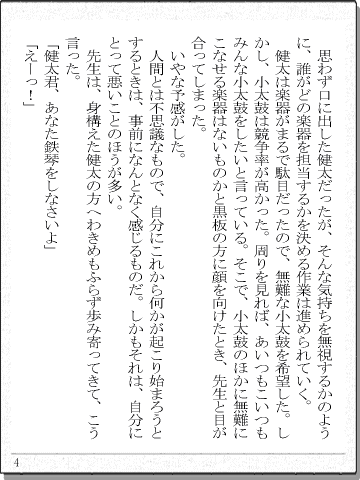 思わず口に出した健太だったが、そんな気持ちを無視するかのよう
に、誰がどの楽器を担当するかを決める作業は進められていく。
　健太は楽器がまるで駄目だったので、無難な小太鼓を希望した。し
かし、小太鼓は競争率が高かった。周りを見れば、あいつもこいつも
みんな小太鼓をしたいと言っている。そこで、小太鼓のほかに無難に
こなせる楽器はないものかと黒板の方に顔を向けたとき、先生と目が
合ってしまった。
　いやな予感がした。
　人間とは不思議なもので、自分にこれから何かが起こり始まろうと
するときは、事前になんとなく感じるものだ。しかもそれは、自分に
とって悪いことのほうが多い。
　先生は、身構えた健太の方へわきめもふらず歩み寄ってきて、こう
言った。
「健太君、あなた鉄琴をしなさいよ」
「えーっ！」
4